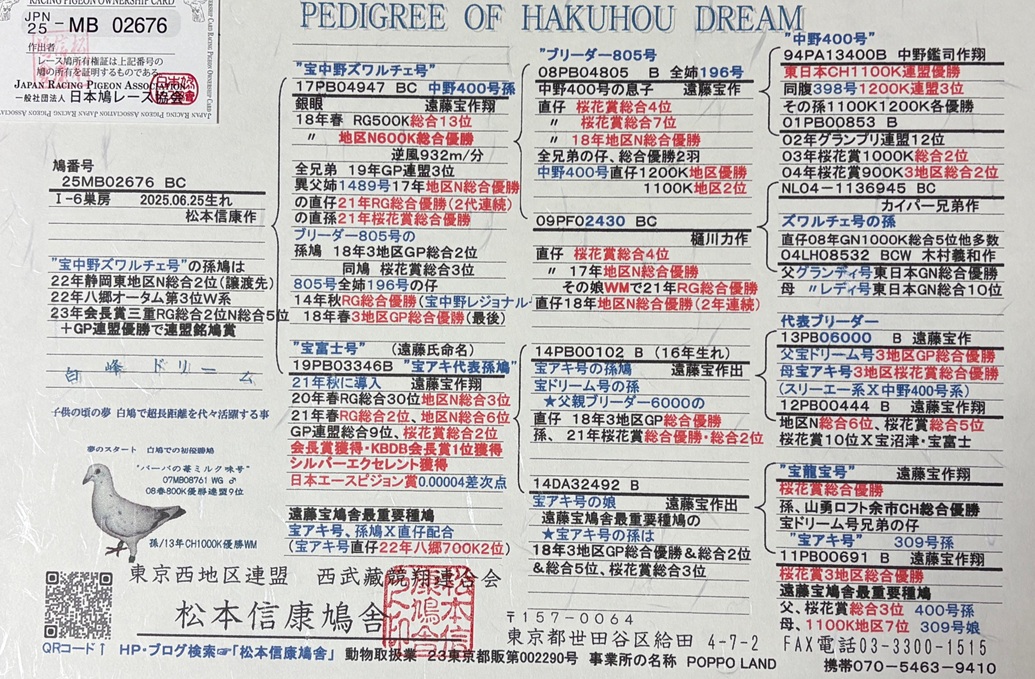 RACING PIGEON OWNERSHIP CARD
JPN
25 -MB 02676
作出者
レース鳩所有権証は上記番号の
鳩の所有を証明するものである
JAPAN RACING PIGEON ASSOCIATION
一般社団法人 日本鳩レース協会
PEDIGREE OF HAKUHOU DREAM
鳩番号
25MB02676 BC
I-6巣房 2025.06.25生れ
松本信康作
"宝中野ズワルチェ号"の孫鳩は
22年静岡東地区N総合2位(譲渡先)
22年八郷オータム第3位W系
23年会長賞三重RG総合2位N総合5位
＋GP連盟優勝で連盟銘鳩賞
白峰ドリーム
子供の頃の夢 白鳩で超長距離を代々活躍する事
夢のスタート 白鳩での初優勝鳩
"パーパの苺ミルク味号"
07MB08761 WG ♂
08春800K優勝連盟9位
孫/13年CH1000K優勝WM
"宝中野ズワルチェ号"
17PB04947 BC 中野400号孫
銀眼 遠藤宝作翔
18年春 RG500K総合13位
〃 地区N600K総合優勝
逆風932m/分
全兄弟 19年GP連盟3位
異父姉1489号17年地区N総合優勝
の直仔21年RG総合優勝(2代連続)
の直孫21年桜花賞総合優勝
ブリーダー805号の
孫鳩 18年3地区GP総合2位
同鳩 桜花賞総合3位
805号全姉196号の仔
14年秋RG総合優勝(宝中野レジョナル
18年春3地区GP総合優勝(最後)
"宝富士号" (遠藤氏命名)
19PB03346B "宝アキ代表孫鳩"
21年秋に導入 遠藤宝作翔
20年春RG総合30位地区N総合3位
21年春RG総合2位、地区N総合6位
GP連盟総合9位、桜花賞総合2位
会長賞獲得・KBDB会長賞1位獲得
シルバーエクセレント獲得
日本エースピジョン賞0.00004差次点
遠藤宝鳩舎最重要種鳩
宝アキ号、孫鳩X直仔配合
(宝アキ号直仔22年八郷700K2位)
"ブリーダー805号
08PB04805 B 全姉196号
中野400号の息子 遠藤宝作
直仔 桜花賞総合4位
〃 桜花賞総合7位
〃 18年地区N総合優勝
全兄弟の仔、総合優勝2羽
中野400号直仔1200K地区優勝
1100K地区2位
09PF02430 BC
樋川力作
直仔 桜花賞総合4位
〃 17年地区N総合優勝
その娘WMで21年RG総合優勝
直仔18年地区N総合優勝(2年連続)
14PB00102 B (16年生れ)
宝アキ号の孫鳩 遠藤宝作出
宝ドリーム号の孫
★父親ブリーダー6000の
直仔 18年3地区GP総合優勝
孫、21年桜花賞総合優勝・総合2位
14DA32492 B
宝アキ号の娘 遠藤宝作出
遠藤宝鳩舎最重要種鳩の
★宝アキ号の孫は
18年3地区GP総合優勝&総合2位
&総合5位、桜花賞総合3位
"中野400号"
94PA13400B 中野鑑司作翔
東日本CH1100K連盟優勝
同腹398号1200K連盟3位
その孫1100K1200K各優勝
01PB00853 B
02年グランプリ連盟12位
03年桜花賞1000K総合2位
04年桜花賞900K3地区総合2位
NL04-1136945 BC
カイパー兄弟作
ズワルチェ号の孫
直仔08年GN1000K総合5位他多数
04LH08532 BCW 木村義和作
父グランディ号東日本GN総合優勝
母 〃レディ号東日本GN総合10位
代表ブリーダー
13PB06000 B 遠藤宝作
父宝ドリーム号3地区GP総合優勝
母宝アキ号3地区桜花賞総合優勝
(スリーエー系X中野400号系)
12PB00444 B 遠藤宝作翔
地区N総合6位、桜花賞総合5位
桜花賞10位X宝沼津・宝富士
"宝龍宝号" 遠藤宝作翔
桜花賞総合優勝
孫、山勇ロフト余市CH総合優勝
宝ドリーム号兄弟の仔
"宝アキ号" 309号孫
11PB00691 B 遠藤宝作翔
桜花賞3地区総合優勝
遠藤宝鳩舎最重要種鳩
父、桜花賞総合3位 400号孫
母、1100K地区7位 309号娘
東京西地区連盟 西武蔵競翔連合会
松本信康鳩舎
〒157-0064
東京都世田谷区給田 4-7-2 FAX電話03-3300-1515
QRコード↑ HP・ブログ検索☞「松本信康鳩舎」 動物取扱業 23東京都販第002290号 事業所の名称 POPPO LAND 携帯070-5463-9410